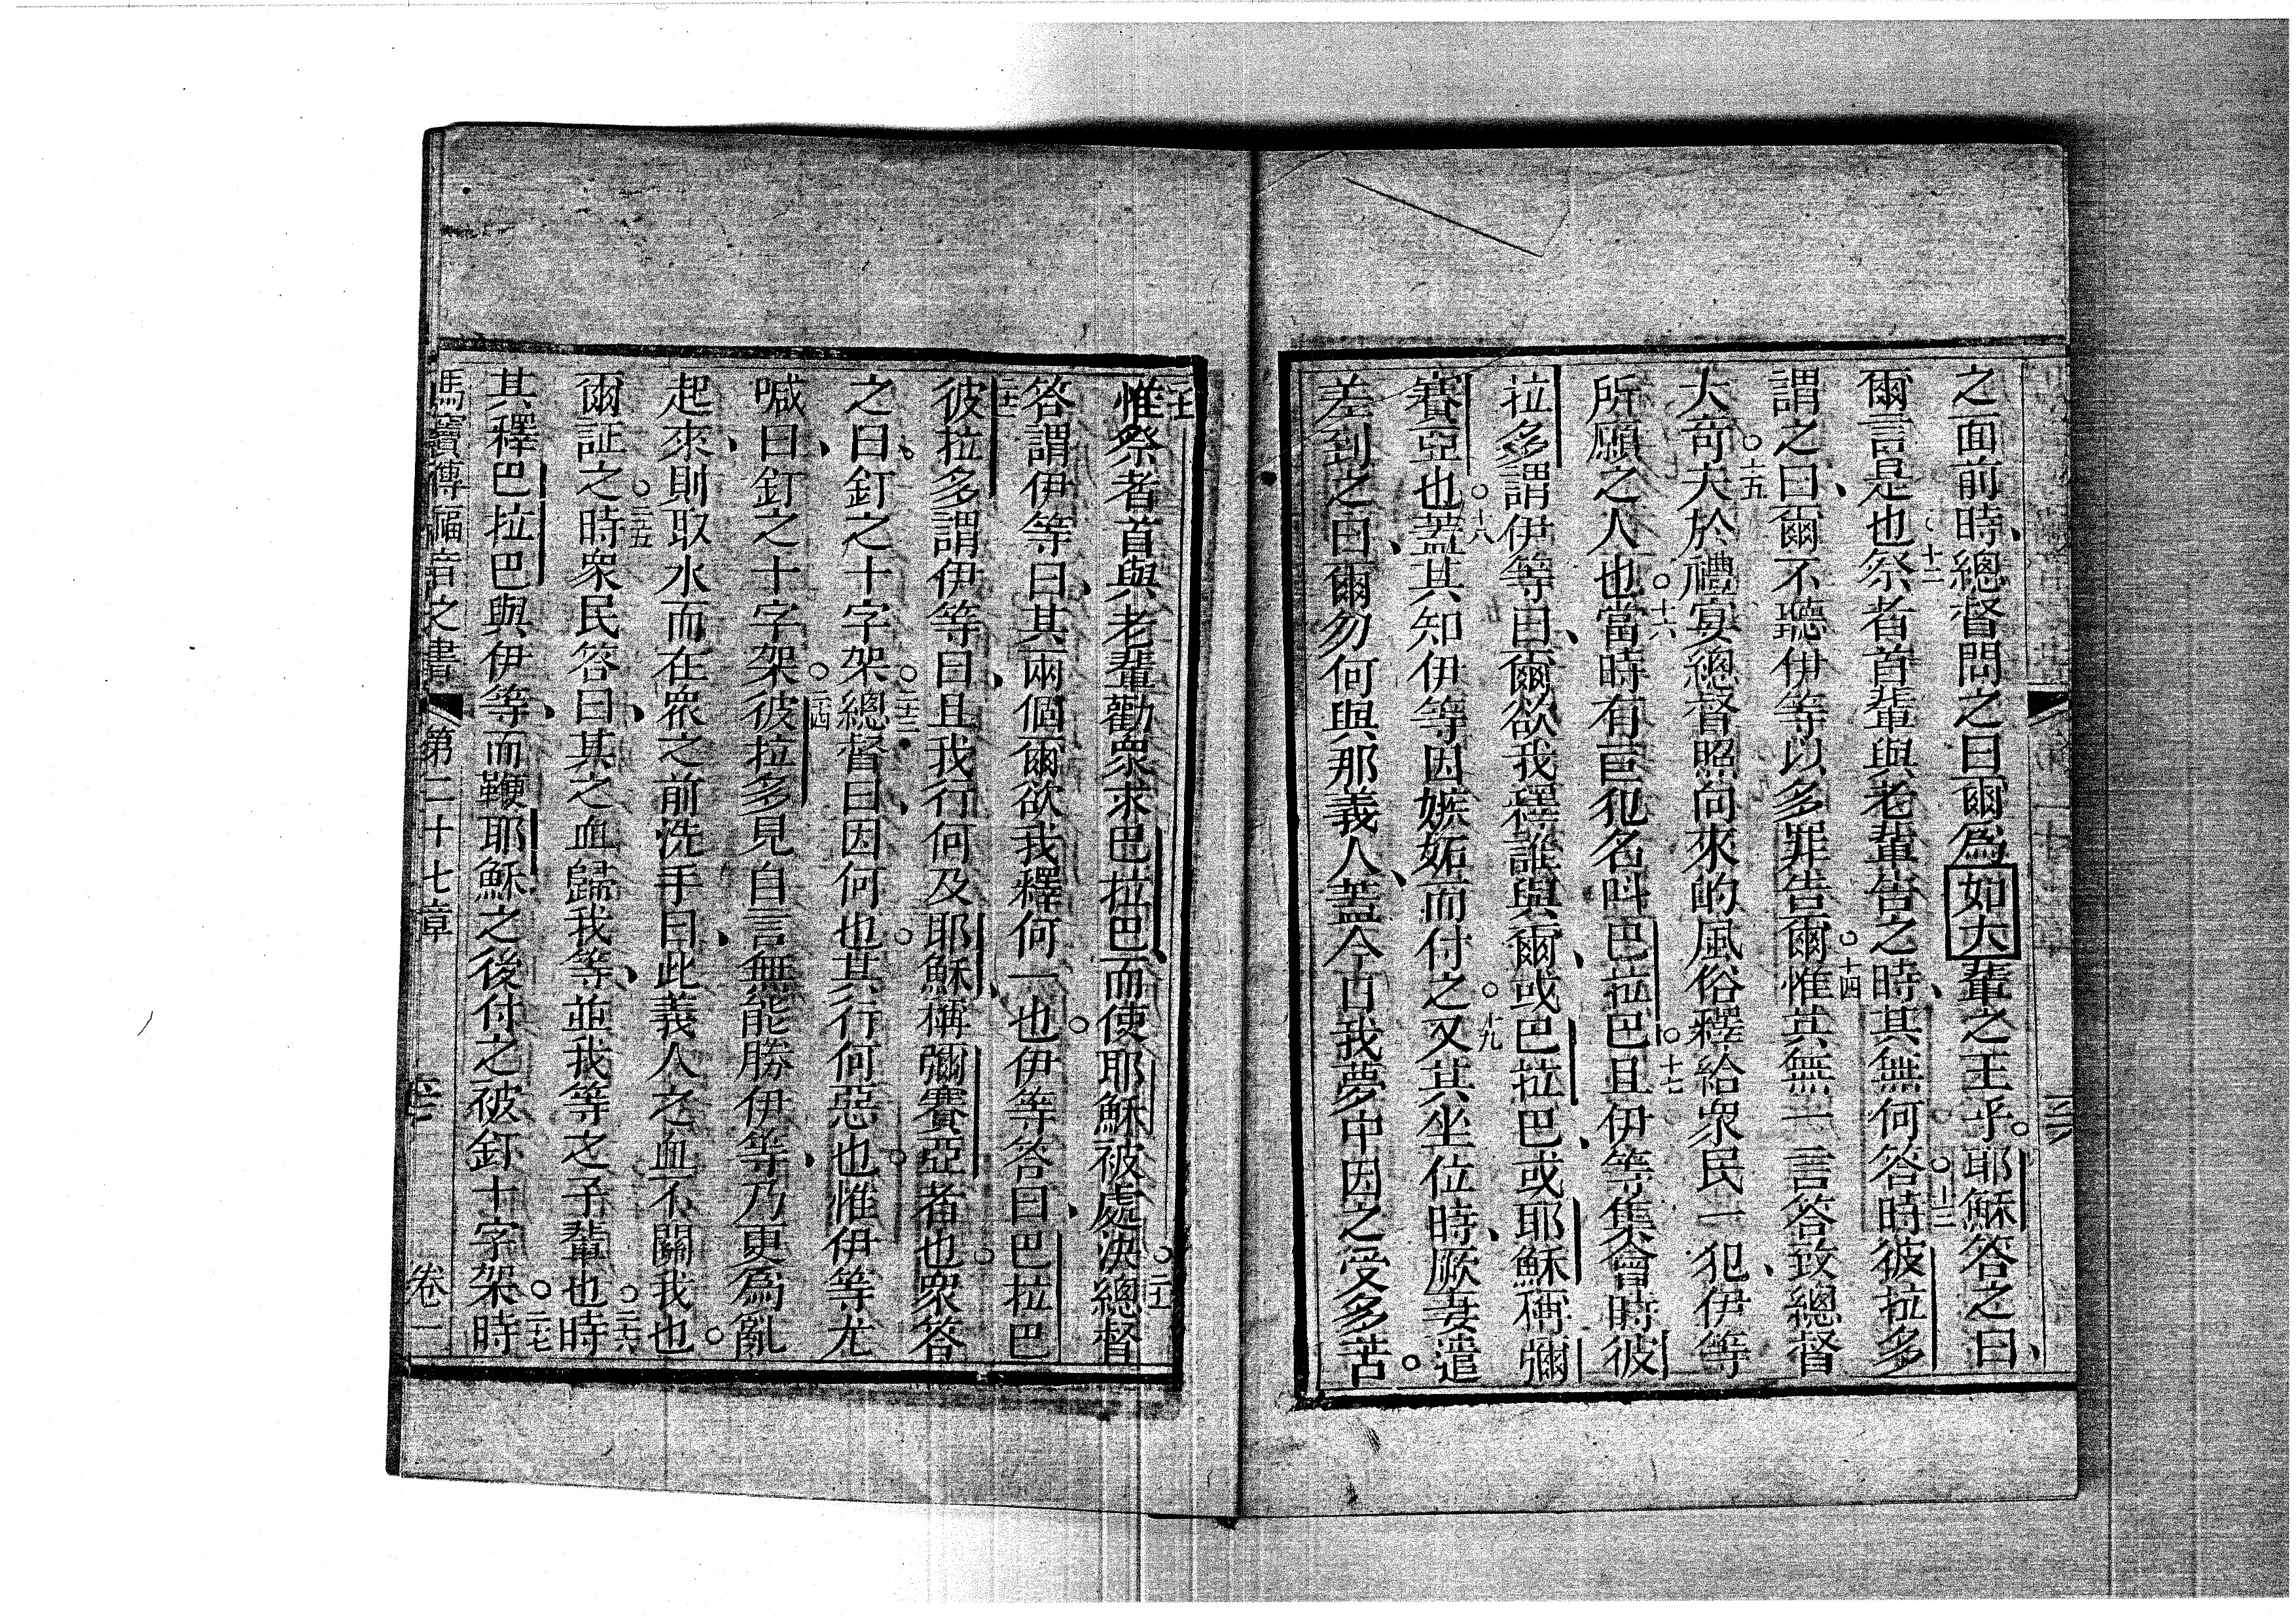 之面前時、總督問之曰爾爲如大輩之王乎。耶穌答之曰、
爾言是也。十二祭者首輩與老輩告之時、其無何答。十三時彼拉多
謂之曰、爾不聽伊等以多罪告爾。十四惟其無一言答致總督
大奇。十五夫於禮宴總督照向來的風俗釋給衆民一犯、伊等
所願之人也。十六當時有巨犯名呌巴拉巴。十七且伊等集會時彼
拉多謂伊等曰、爾欲我釋誰與爾、或巴拉巴、或耶穌稱彌
賽亞也。十八蓋其知伊等因嫉妬而付之。十九又其坐位時、厥妻遣
差到之曰、爾勿何與那義人、蓋今日我夢中因之受多苦。
二十惟祭者首與老輩勸衆求巴拉巴、而使耶穌被處決。二十一總督
答謂伊等曰、其兩個爾欲我釋何一也。伊等答曰、巴拉巴
二十二彼拉多謂伊等曰、且我行何及耶穌、稱彌賽亞者也。衆答
之曰、釘之十字架。二十三總督曰、因何也。其行何惡也。惟伊等尤
喊曰、釘之十字架。二十四彼拉多見自言無能勝伊等、乃更爲亂
起來、則取水而在衆之前洗手曰、此義人之血不關我也。
爾証之。二十五時衆民答曰、其之血歸我等、並我等之子輩也。二十六時
其釋巴拉巴與伊等、而鞭耶穌之後付之被釘十字架。二十七時
馬竇傳福音之書 第二十七章 卷一